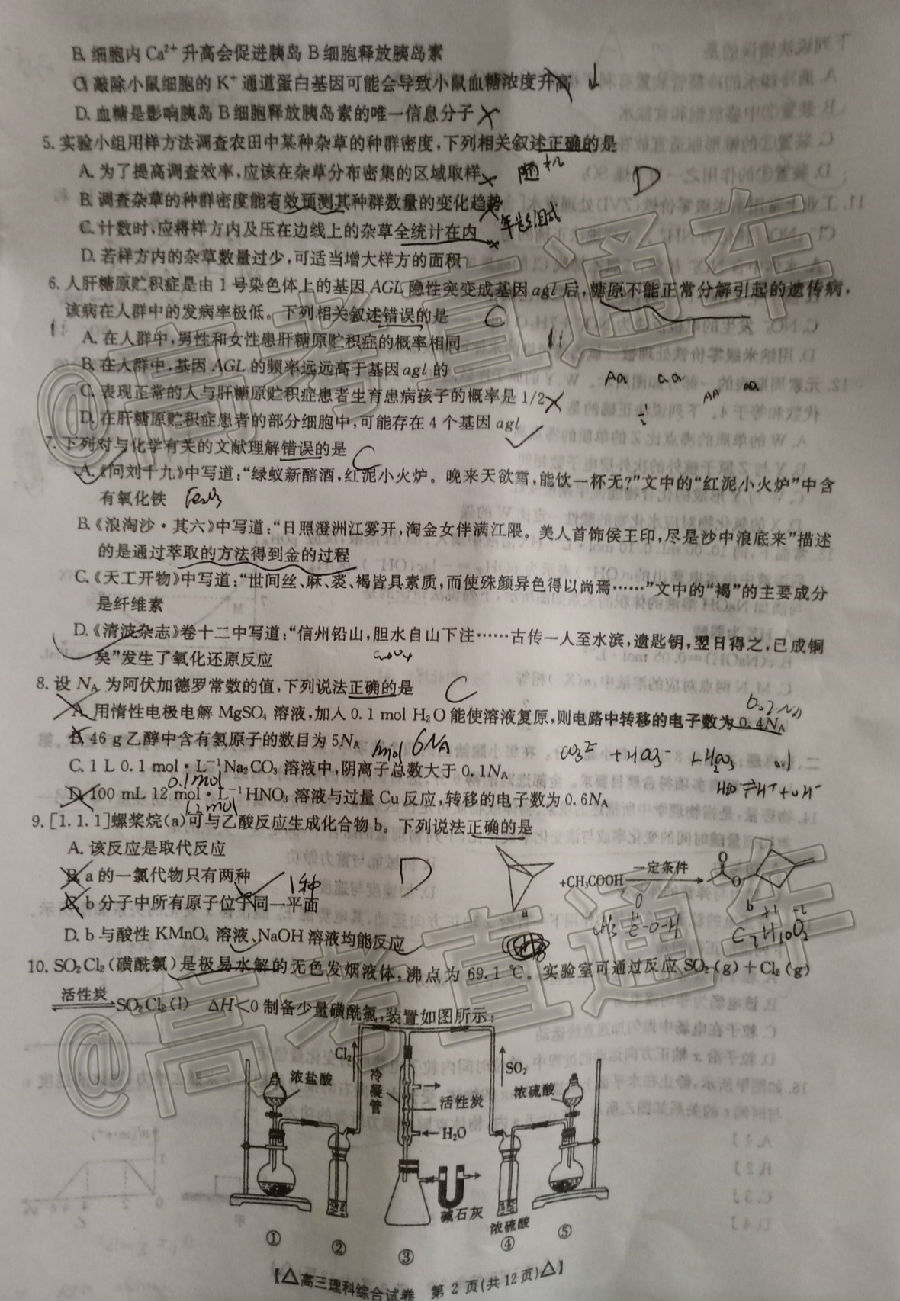 B. 细胞内 Ca²⁺ 升高会促进胰岛 B 细胞释放胰岛素
C. 敲除小鼠细胞的 K⁺ 通道蛋白基因可能会导致小鼠血糖浓度升高 ↓
D. 血糖是影响胰岛 B 细胞释放胰岛素的唯一信息分子 ×
5. 实验小组用样方法调查农田中某种杂草的种群密度,下列相关叙述正确的是
A. 为了提高调查效率,应该在杂草分布密集的区域取样 × 随机
D
B. 调查杂草的种群密度能有效预测其种群数量的变化趋势 ×
C. 计数时,应将样方内及压在边线上的杂草全统计在内 ×
D. 若样方内的杂草数量过少,可适当增大样方的面积
6. 人肝糖原贮积症是由 1 号染色体上的基因 AGL 隐性突变成基因 agl 后,糖原不能正常分解引起的遗传病,
该病在人群中的发病率极低。下列相关叙述错误的是 C
A. 在人群中,男性和女性患肝糖原贮积症的概率相同
B. 在人群中,基因 AGL 的频率远远高于基因 agl 的
Aa aa
C. 表现正常的人与肝糖原贮积症患者生育患病孩子的概率是 1/2 ×
AA aa
D. 在肝糖原贮积症患者的部分细胞中,可能存在 4 个基因 agl ✓
7. 下列对与化学有关的文献理解错误的是 C
A.《问刘十九》中写道:“绿蚁新醅酒,红泥小火炉。晚来天欲雪,能饮一杯无?”文中的“红泥小火炉”中含
有氧化铁
B.《浪淘沙·其六》中写道:“日照澄洲江雾开,淘金女伴满江隈。美人首饰侯王印,尽是沙中浪底来”描述
的是通过萃取的方法得到金的过程
C.《天工开物》中写道:“世间丝、麻、裘、褐皆具素质,而使殊颜异色得以尚焉……”文中的“褐”的主要成分
是纤维素
D.《清波杂志》卷十二中写道:“信州铅山,胆水自山下注……古传一人至水滨,遗匙钥,翌日得之,已成铜
矣”发生了氧化还原反应
8. 设 Nₐ 为阿伏加德罗常数的值,下列说法正确的是 C
A. 用惰性电极电解 MgSO₄ 溶液,加入 0.1 mol H₂O 能使溶液复原,则电路中转移的电子数为 0.4Nₐ
0.2NA
B. 46 g 乙醇中含有氢原子的数目为 5Nₐ 1mol 6NA
C. 1 L 0.1 mol·L⁻¹ Na₂CO₃ 溶液中,阴离子总数大于 0.1Nₐ
CO₃²⁻ + HCO₃⁻ + H₂CO₃ 0.1
0.1mol
H₂O ⇌ H⁺ + OH⁻
D. 100 mL 12 mol·L⁻¹ HNO₃ 溶液与过量 Cu 反应,转移的电子数为 0.6Nₐ
9. [1.1.1]螺桨烷(a)可与乙酸反应生成化合物 b。下列说法正确的是
A. 该反应是取代反应
B. a 的一氯代物只有两种 1种
D
C. b 分子中所有原子位于同一平面
D. b 与酸性 KMnO₄ 溶液、NaOH 溶液均能反应
a +CH₃COOH 一定条件 O O b
C₇H₁₀O₂
10. SO₂Cl₂(磺酰氯)是极易水解的无色发烟液体,沸点为 69.1 ℃。实验室可通过反应 SO₂(g)+Cl₂(g)
活性炭 ⇌ SO₂Cl₂(l) ΔH<0 制备少量磺酰氯,装置如图所示:
Cl₂
SO₂
浓盐酸
冷凝管
浓硫酸
活性炭
H₂O
碱石灰
浓硫酸
① ② ③ ④ ⑤
【△高三理科综合试卷 第 2 页(共 12 页)△】
@高考直通车
@高考直通车